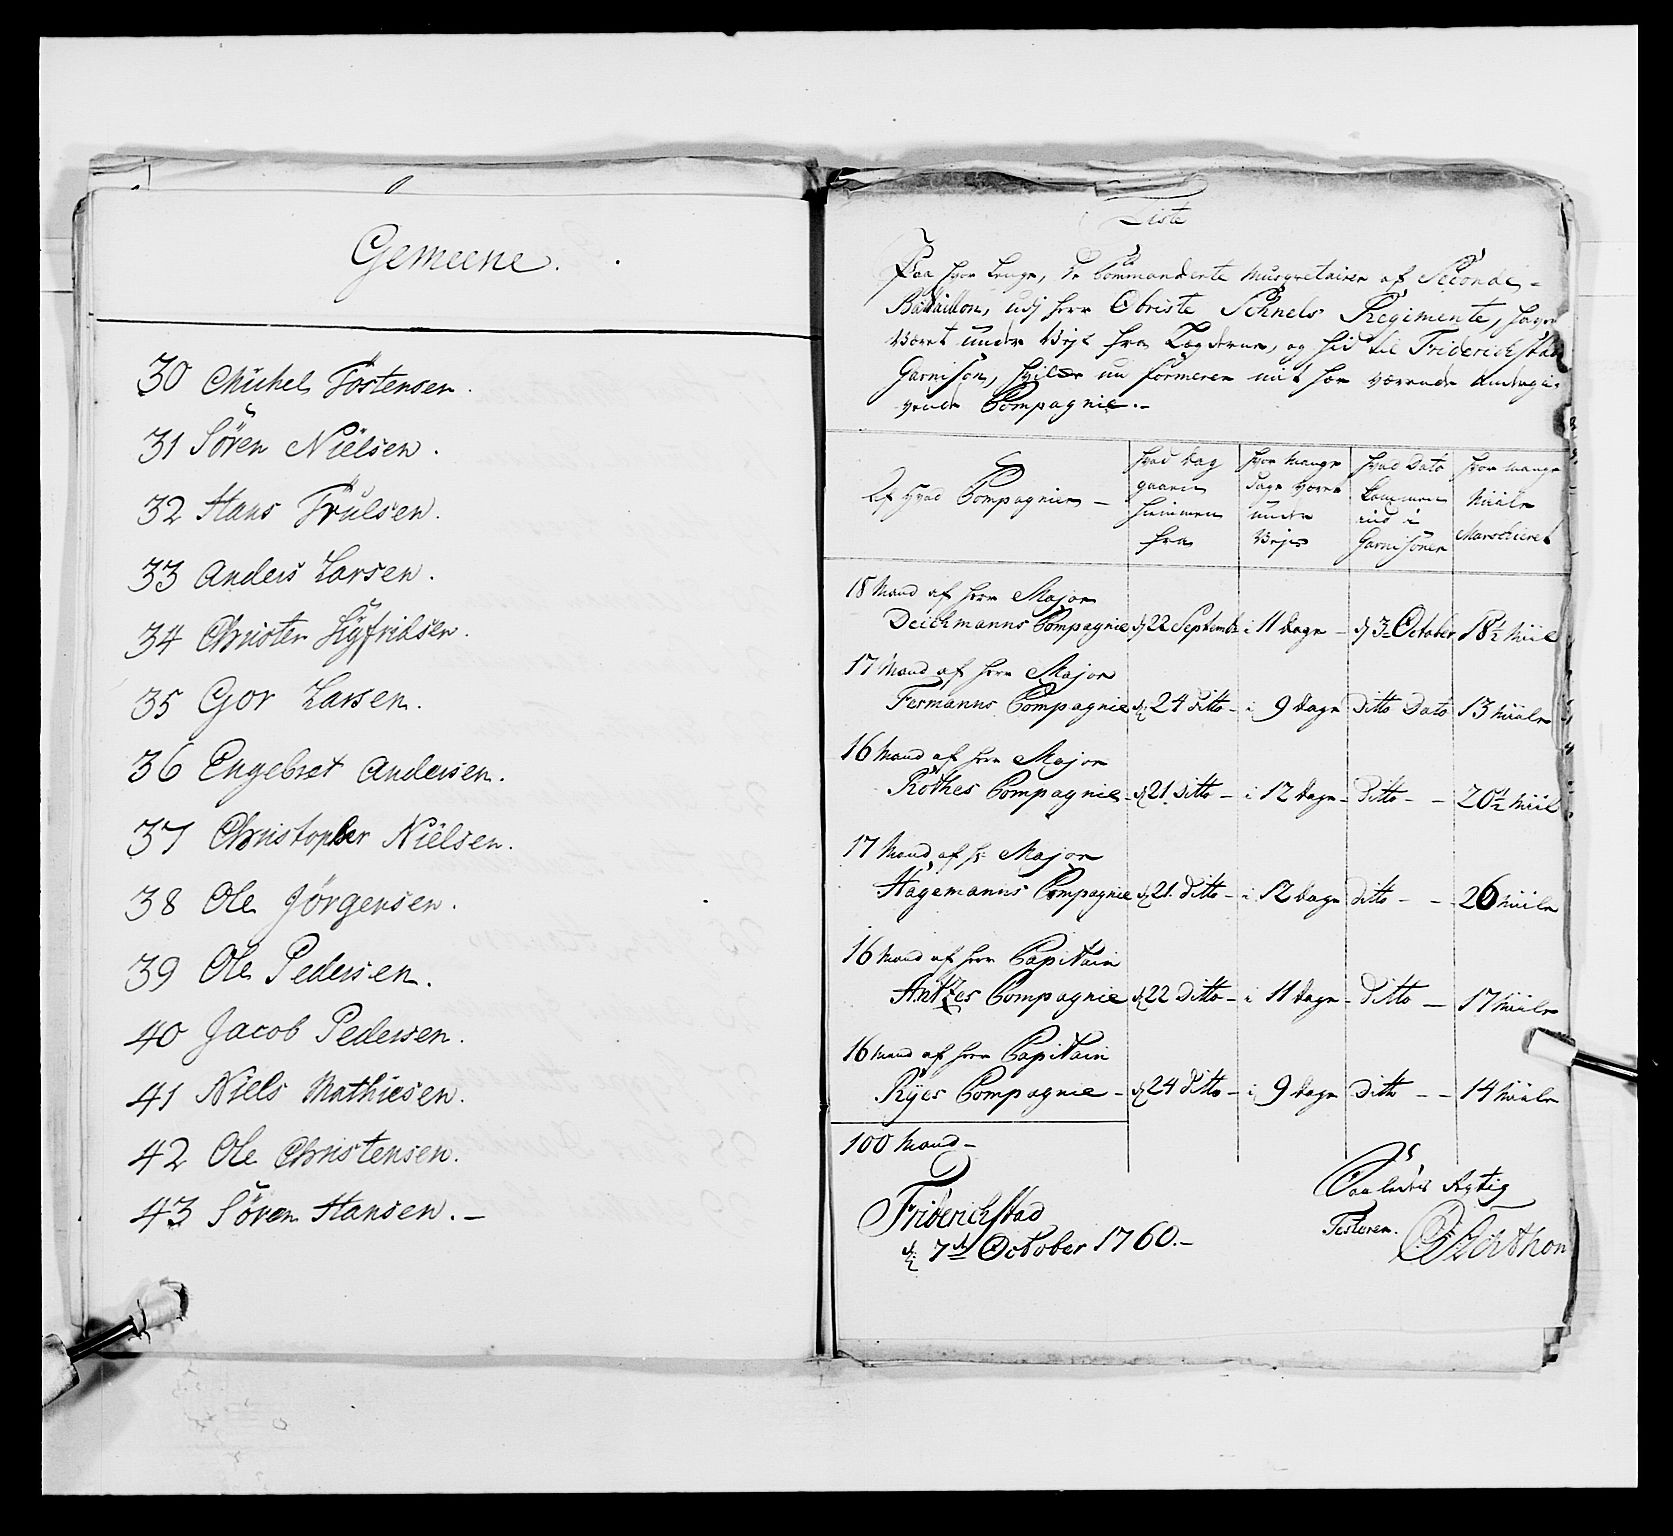 Gemeene.
30 Michel Tostensen.
31 Sören Nielsen.
32 Hans Trulsen.
33 Anders Larsen.
34 Christen Sigfridsen.
35 Gor Larsen.
36 Engebret Andersen.
37 Christopher Nielsen.
38 Ole Jörgensen.
39 Ole Pedersen.
40 Jacob Pedersen.
41 Niels Mathiesen.
42 Ole Christensen.
43 Sören Hansen.
Liste
Paa hvor Lenge, de Commanderte Musqvetairer af Seconde
Bataillon, udj Herr Obriste Schnels Regimente, haver
Været under Vejs fra Lægderne, og hid til Friderichstad
Garnison, hvilke nu formerer mit her værende
Compagnie.
Af hvad Compagnier
hvad dag gaaen hiemmen fra
hvor mange dage være under Vejs
hvad Dato kommen ind i Garnisonen
hvor mange Miile Marschieret
18 Mand af Herr Major
Deichmanns Compagnie d 22 September i 11 dage d 3 October 18½ Miil
17 Mand af Herr Major
Fermanns Compagnie d 24 ditto i 9 dage Ditto Dato 13 Miile
16 Mand af Herr Major
Röthes Compagnie d 21 ditto i 12 dage Ditto 20½ Miil
17 Mand af Hr Major
Hagemanns Compagnie d 21 ditto i 12 dage ditto 26 Miile
16 Mand af Herr Capitain
Antzes Compagnie d 22 Ditto i 11 dage Ditto 17 Miile
16 Mand af Herr Capitain
Ryes Compagnie d 24 ditto i 9 dage Ditto 14 Miile
100 Mand
Friderichstad
d 7de October 1760.
Saaledes Rigtig
Testerer.